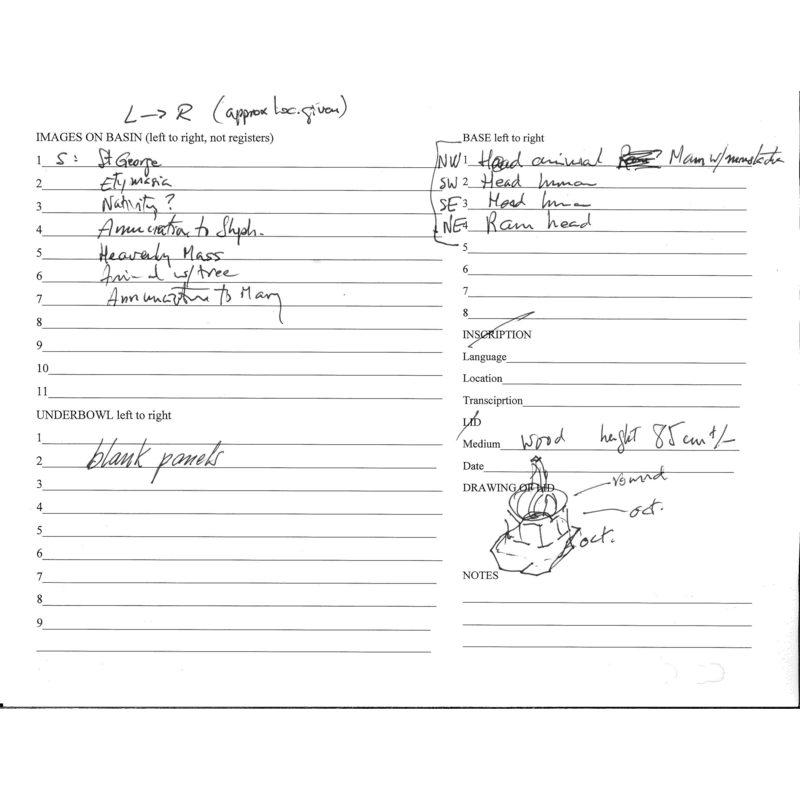 L → R (approx loc. given)
IMAGES ON BASIN (left to right, not registers)
1 S: St George
2 Etymasia
3 Nativity?
4 Annunciation to Sheph.
5 Heavenly Mass
6 Animal w/ tree
7 Annunciation to Mary
8
9
10
11
UNDERBOWL left to right
1
2 blank panels
3
4
5
6
7
8
9
BASE left to right
NW 1 Head animal ? Man w/ mustache
SW 2 Head human
SE 3 Head human
NE 4 Ram head
5
6
7
8
INSCRIPTION
Language
Location
Transciprtion
LID
Medium wood height 85 cm +/-
Date
DRAWING OF LID
round
oct.
oct.
NOTES